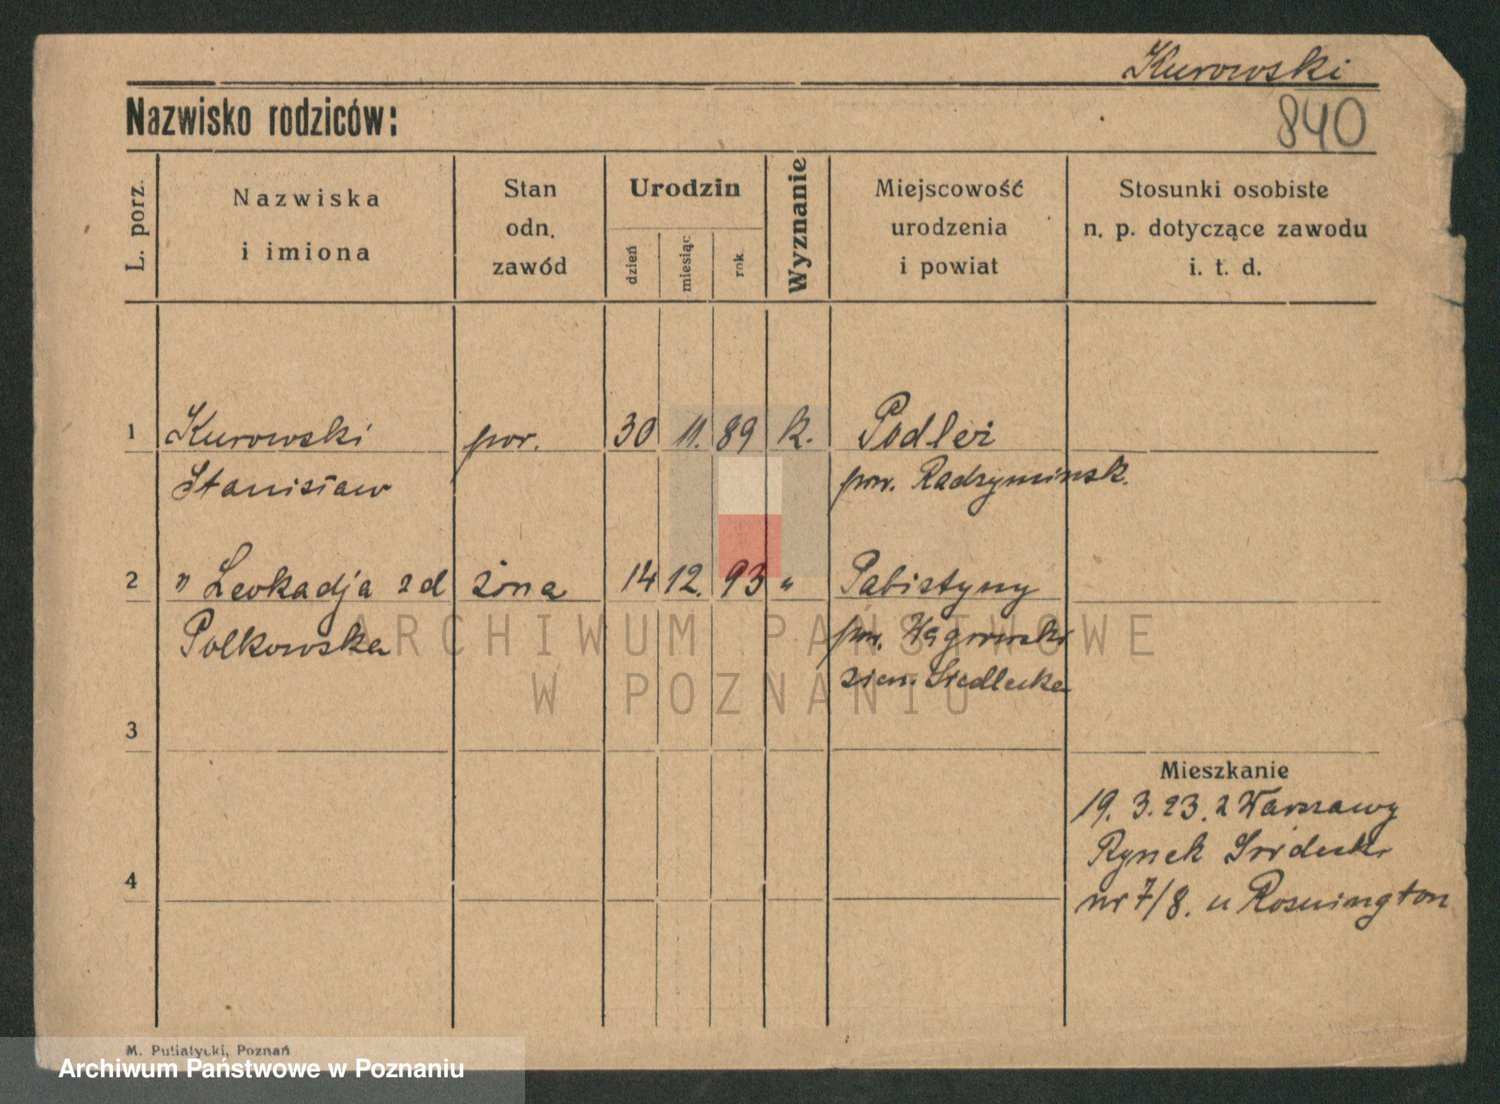 Kurowski
840
Nazwisko rodziców:
L. porz.
Nazwiska
i imiona
Stan
odn.
zawód
Urodzin
dzień
miesiąc
rok.
Wyznanie
Miejscowość
urodzenia
i powiat
Stosunki osobiste
n. p. dotyczące zawodu
i. t. d.
1 Kurowski por. 30 11. 89 k.
Stanisław pow. Radzymińsk.
2 " Leokadja zd żona 14 12. 93 "
Polkowska
pow. Węgrowski
ziem. Siedlecka
3
Mieszkanie
19. 3. 23. z Warszawy
Rynek
4
nr 7/8. u
ARCHIWUM PAŃSTWOWE
W POZNANIU
M. Putiatycki, Poznań
Archiwum Państwowe w Poznaniu